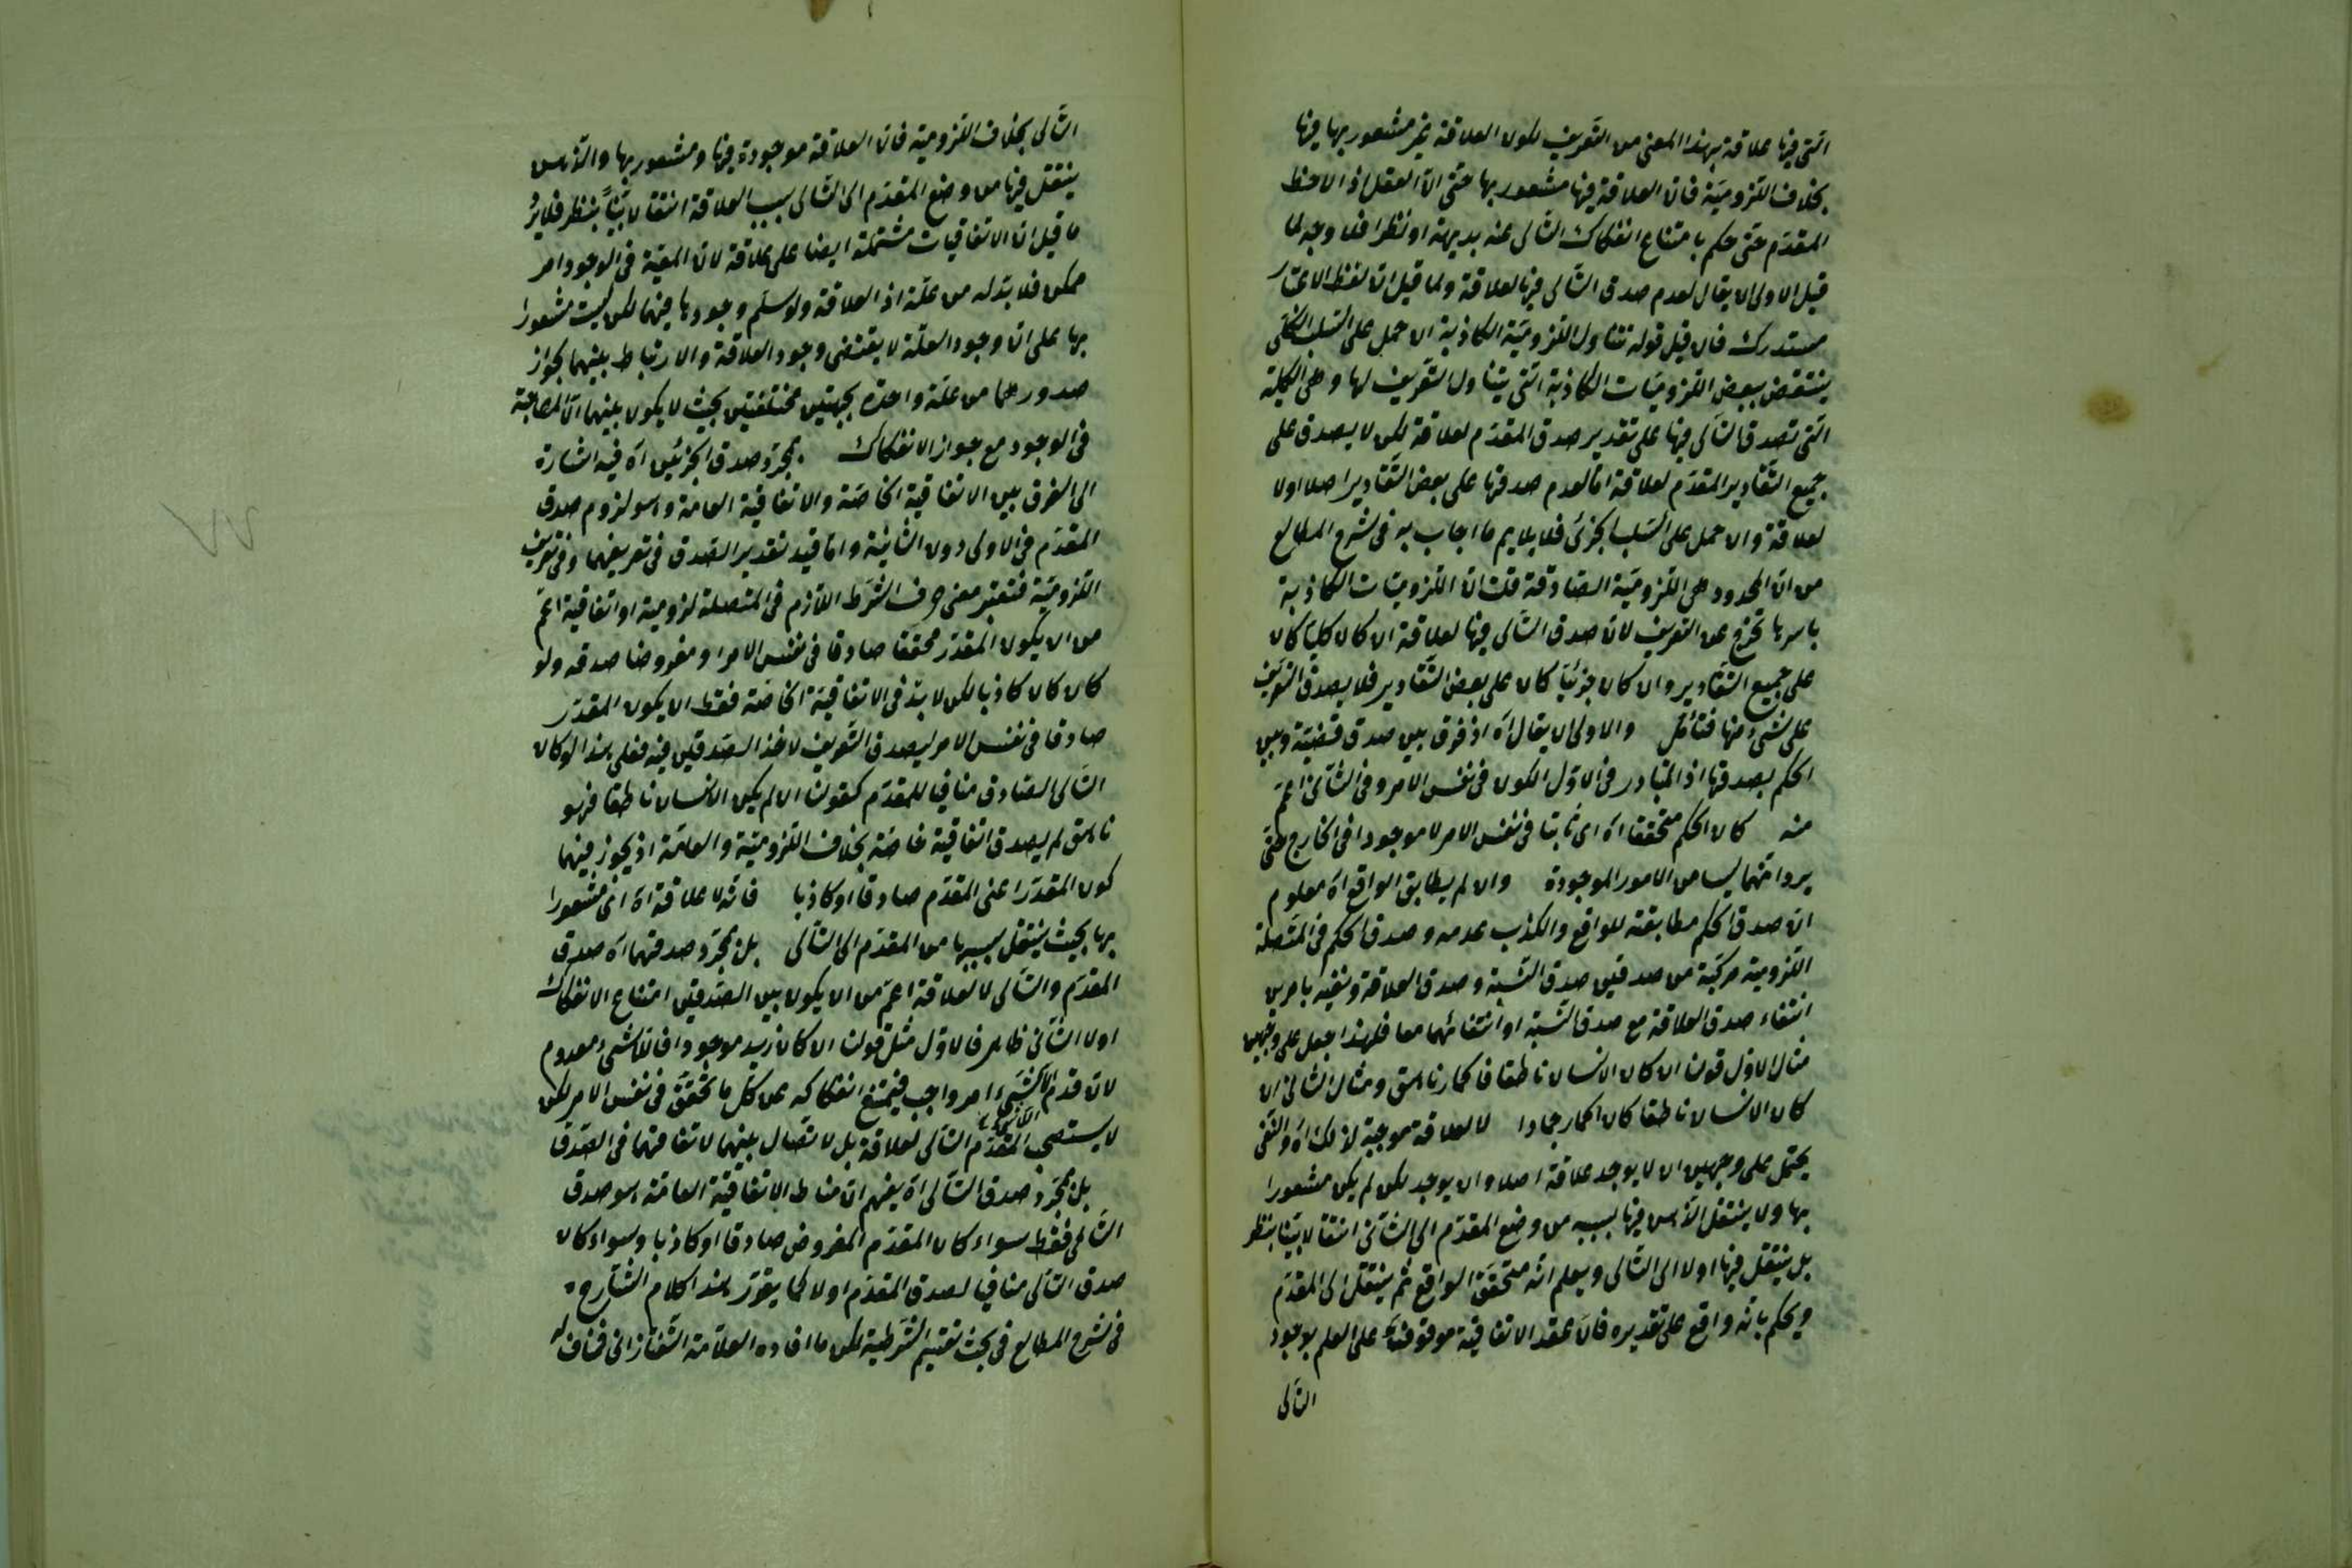 التى فيها علاقة بهذا المعنى من التعريف لكون العلاقة غير مشعور بها فيها
بخلاف اللزوميّة فان العلاقة فيها مشعور بها حتى انّ العقل اذا لاحظ
المقدّم حتى حكم بامتناع انفكاك التّالى عنه بديهة او نظرا فلا وجه لما
قيل الاولى ان يقال لعدم صدق التّالى فيها لعلاقة ولما قيل انّ لفظ الاعتبار
مستدرك فان قيل قوله تتناول اللزوميّة الكاذبة ان حمل على السّلب الكلّى
ينتقض ببعض اللزوميّات الكاذبة التى يتناول التّعريف لها وهى الكلية
التى تصدق التّالى فيها على تقدير صدق المقدّم لعلاقة لكن لا يصدق على
جميع التّقادير المقدّم لعلاقة امّا لعدم صدقها على بعض التّقادير اصلا او لا
لعلاقة وان حمل على السّلب الجزئى فلا يلايم ما اجاب به فى شرح المطالع
من انّ المحدود هى اللزوميّة الصّادقة قلت انّ اللزوميّات الكاذبة
باسرها تخرج عن التعريف لانّ صدق التّالى فيها لعلاقة ان كان كليّا كان
على جميع التّقادير وان كان جزئيّا كان على بعض التّقادير فلا يصدق التّعريف
على شىء منها فتأمّل والاولى ان يقال اه اذ فرق بين صدق قضيّة وبين
الحكم بصدقها اذ المتبادر فى الاوّل الكون فى نفس الامر وفى الثّانى اعمّ
منه كان الحكم متحققا اه اى ثابتا فى نفس الامر لا موجودا فى الخارج حتى
يرد انّهما ليسا من الامور الموجودة وان لم يطابق الواقع اه معلوم
انّ صدق الحكم مطابقته للواقع والكذب عدمه وصدق الحكم فى المتّصلة
اللزومية مركّبة من صدقين صدق النّسبة وصدق العلاقة ونفيه بامرين
انتفاء صدق العلاقة مع صدق النّسبة او انتفائهما معا فلهذا جعل على وجهين
مثال الاوّل قولنا ان كان الانسان ناطقا فالحمار ناهق ومثال الثّانى ان
كان الانسان ناطقا كان الحمار جمادا لا لعلاقة موجبة لذلك اه والنّفى
يحتمل على وجهين ان لا يوجد علاقة اصلا وان يوجد لكن لم يكن مشعورا
بها ولا ينتقل الذّهن فيها بسببه من وضع المقدّم الى الثّانى انتقالا بيّنا بنظر
بل ينتقل فيها اولا الى التّالى ويعلم انّه متحقّق الواقع ثم ينتقل الى المقدّم
ويحكم بانّه واقع على تقديره فانّ عقد الاتفاقيّة موقوفة على العلم بوجود
التّالى
التّالى بخلاف اللزوميّة فانّ العلاقة موجودة فيها ومشعور بها والذّهن
ينتقل فيها من وضع المقدّم الى التّالى بسبب العلاقة انتقالا بيّنا بنظر فلا يرد
ما قيل انّ الاتفاقيات مشتملة ايضا على علاقة لانّ المعيّة فى الوجود امر
ممكن فلا بدّ له من علّة اذ العلاقة ولو سلّم وجودها فيهما لكن ليست مشعورا
بها على انّ وجود العلّة لا يقتضى وجود العلاقة والارتباط بينهما لجواز
صدورهما من علّة واحدة بجهتين مختلفتين بحيث لا يكون بينهما الّا المصاحبة
فى الوجود مع جواز الانفكاك بمجرّد صدق الجزئين اه فيه اشارة
الى الفرق بين الاتفاقية الخاصّة والاتفاقية العامة وهو لزوم صدق
المقدّم فى الاولى دون الثانية وامّا قيد تقدير الصّدق فى تعريفهما وفى تعريف
اللزوميّة فتعتبر معنى حرف الشّرط اللازم فى المتصلة لزومية او اتفاقية اعمّ
من ان يكون المقدّر محققا صادقا فى نفس الامر او مفروضا صدقه ولو
كان كان كاذبا لكن لا بدّ فى الاتفاقية الخاصّة فقط ان يكون المقدّر
صادقا فى نفس الامر ليصدق التّعريف لاخذ الصّدقين فيه فعلى هذا لو كان
التّالى الصّادق منافيا للمقدّم كقولنا ان لم يكن الانسان ناطقا فهو
ناهق لم يصدق اتفاقية خاصّة بخلاف اللزوميّة والعامّة اذ يجوز فيهما
كون المقدّر اعنى المقدّم صادقا او كاذبا فانّه لا علاقة اه اى مشعورا
بها بحيث ينتقل بسببها من المقدّم الى التّالى بل بمجرّد صدقهما اه صدق
المقدّم والتّالى لا لعلاقة اعمّ من ان يكون بين الصّدقين امتناع الانفكاك
او لا الثّانى ظاهر فالاوّل مثل قولنا ان كان زيد موجودا فاللاشىء معدوم
لانّ عدم اللاشىء امر واجب فيمتنع انفكاكه عن كلّ ما تحقّق فى نفس الامر لكن
لا يستصحب المقدّم التّالى لعلاقة بل لاتّصال بينهما لاتفاقهما فى الصّدق
بل بمجرّد صدق التّالى اه يفهم انّ مناط الاتفاقيّة العامّة هو صدق
التّالى فقط سواء كان المقدّم المفروض صادقا او كاذبا وسواء كان
صدق التّالى منافيا لصدق المقدّم او لا كما يقوّر هذا كلام الشّارح
فى شرح المطالع فى بحث تقسيم الشّرطية لكن ما افاده العلّامة التّفتازانى فناف له